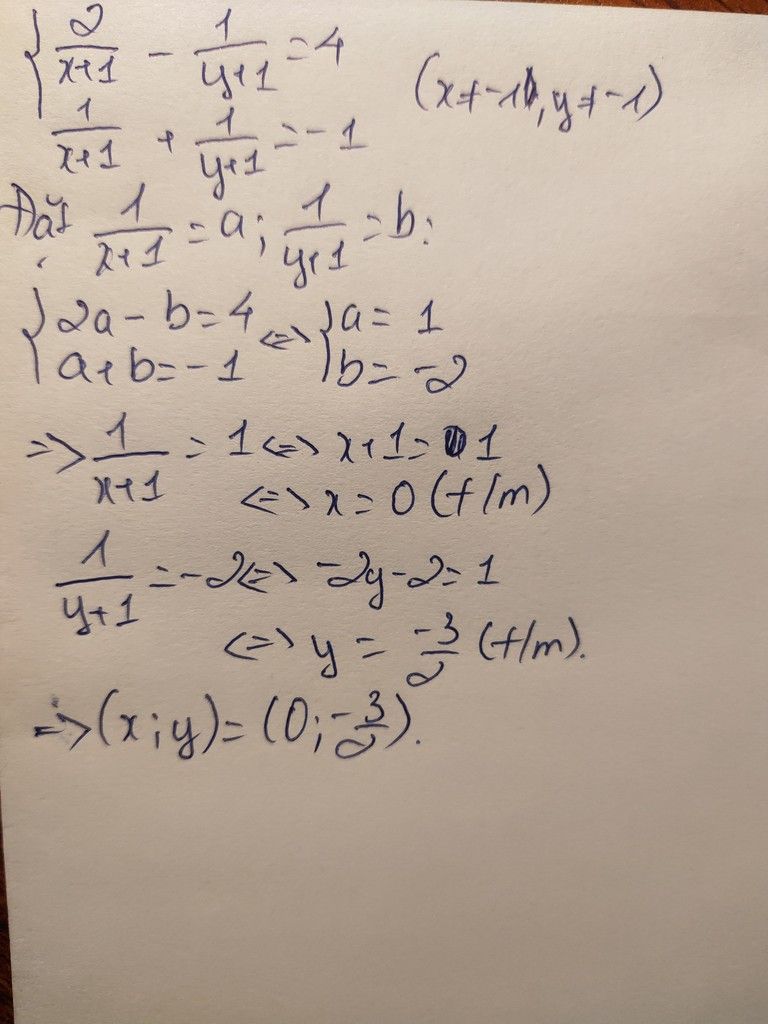 { 2/(x+1) - 1/(y+1) = 4
1/(x+1) + 1/(y+1) = -1 (x ≠ -1, y ≠ -1)
Đặt 1/(x+1) = a; 1/(y+1) = b:
{ 2a - b = 4 <=> { a = 1
a + b = -1 b = -2
=> 1/(x+1) = 1 <=> x+1 = 1
<=> x = 0 (t/m)
1/(y+1) = -2 <=> -2y-2 = 1
<=> y = -3/2 (t/m).
=> (x;y) = (0; -3/2).